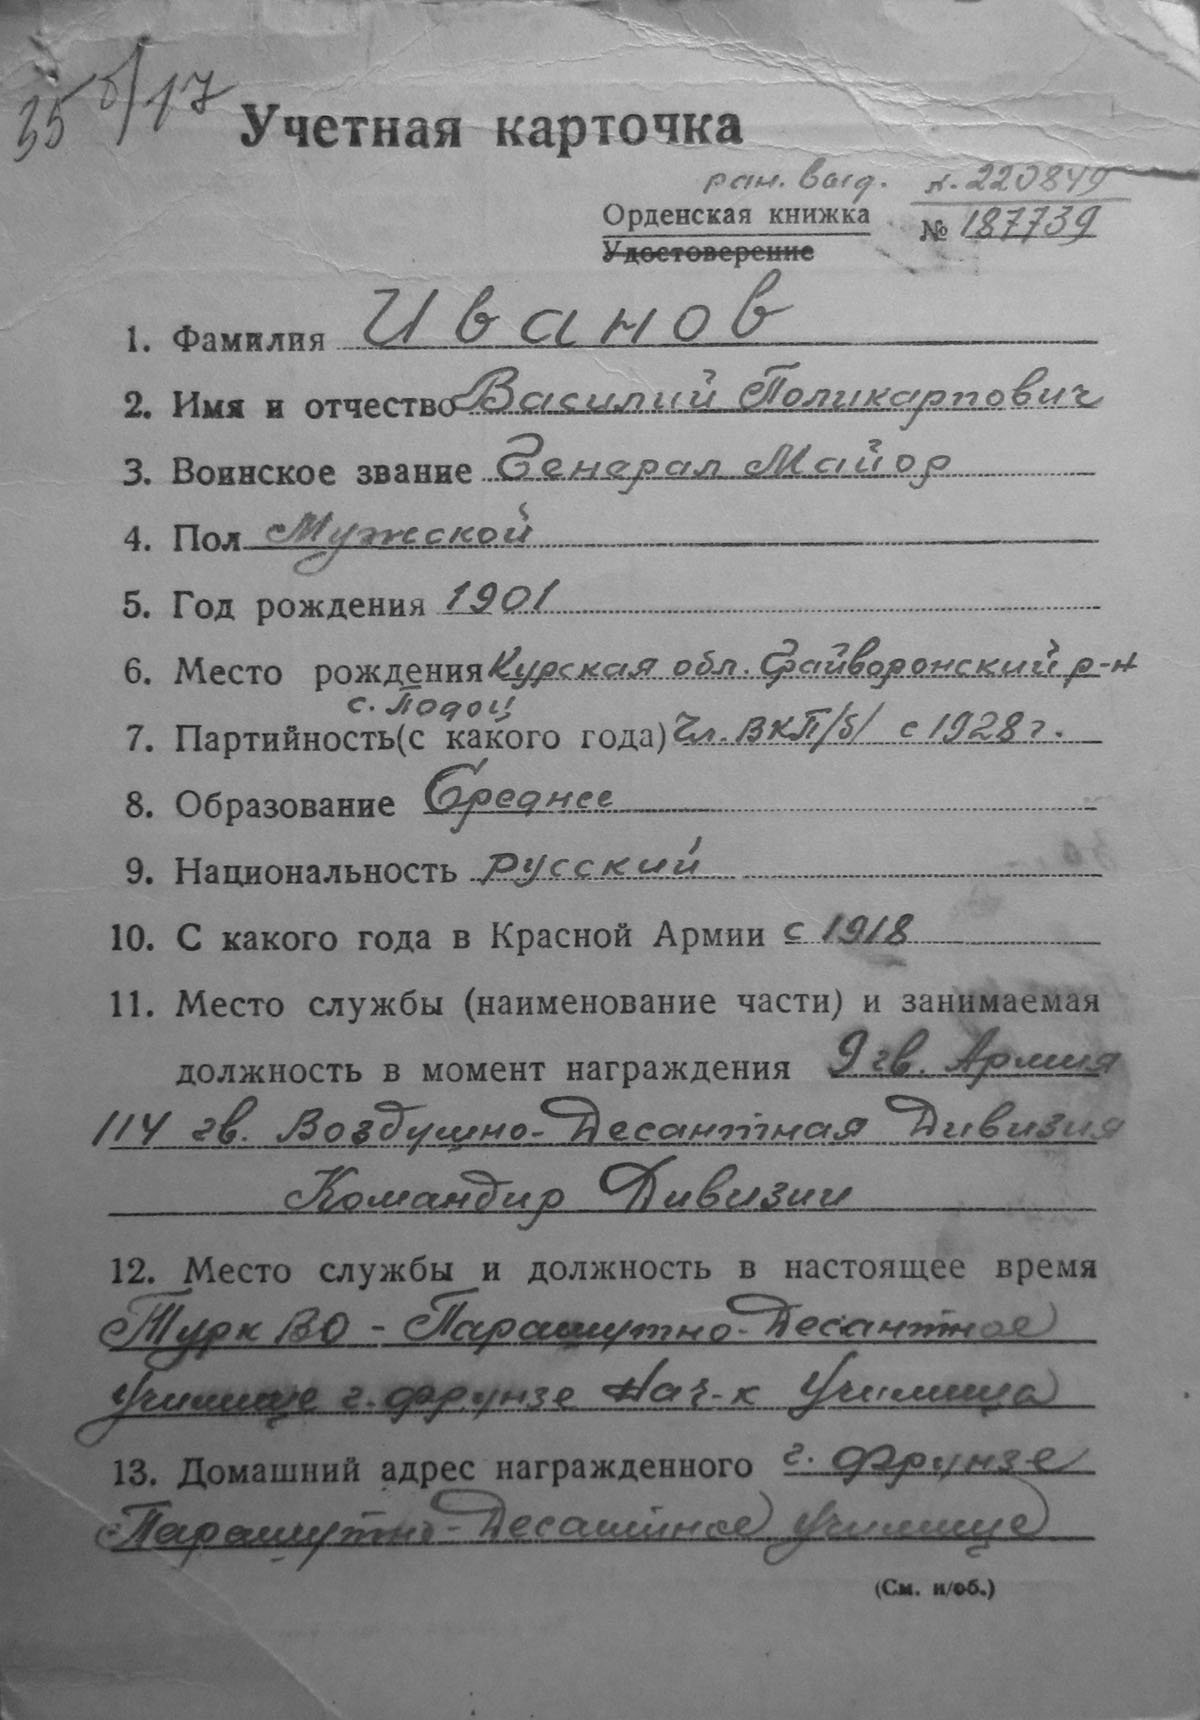 35 б/17
Учетная карточка
ран. выд. н. 220849
Орденская книжка № 187739
Удостоверение
1. Фамилия Иванов
2. Имя и отчество Василий Поликарпович
3. Воинское звание Генерал Майор
4. Пол Мужской
5. Год рождения 1901
6. Место рождения Курская обл. Грайворонский р-н
с. Подол
7. Партийность (с какого года) Чл. ВКП/б/ с 1928 г.
8. Образование Среднее
9. Национальность русский
10. С какого года в Красной Армии с 1918
11. Место службы (наименование части) и занимаемая
должность в момент награждения 9 гв. Армия
114 гв. Воздушно-Десантная Дивизия
Командир Дивизии
12. Место службы и должность в настоящее время
Турк ВО - Парашутно-Десантное
Училище г. Фрунзе Нач-к Училища
13. Домашний адрес награжденного г. Фрунзе
Парашутно-Десантное училище
(См. н/об.)